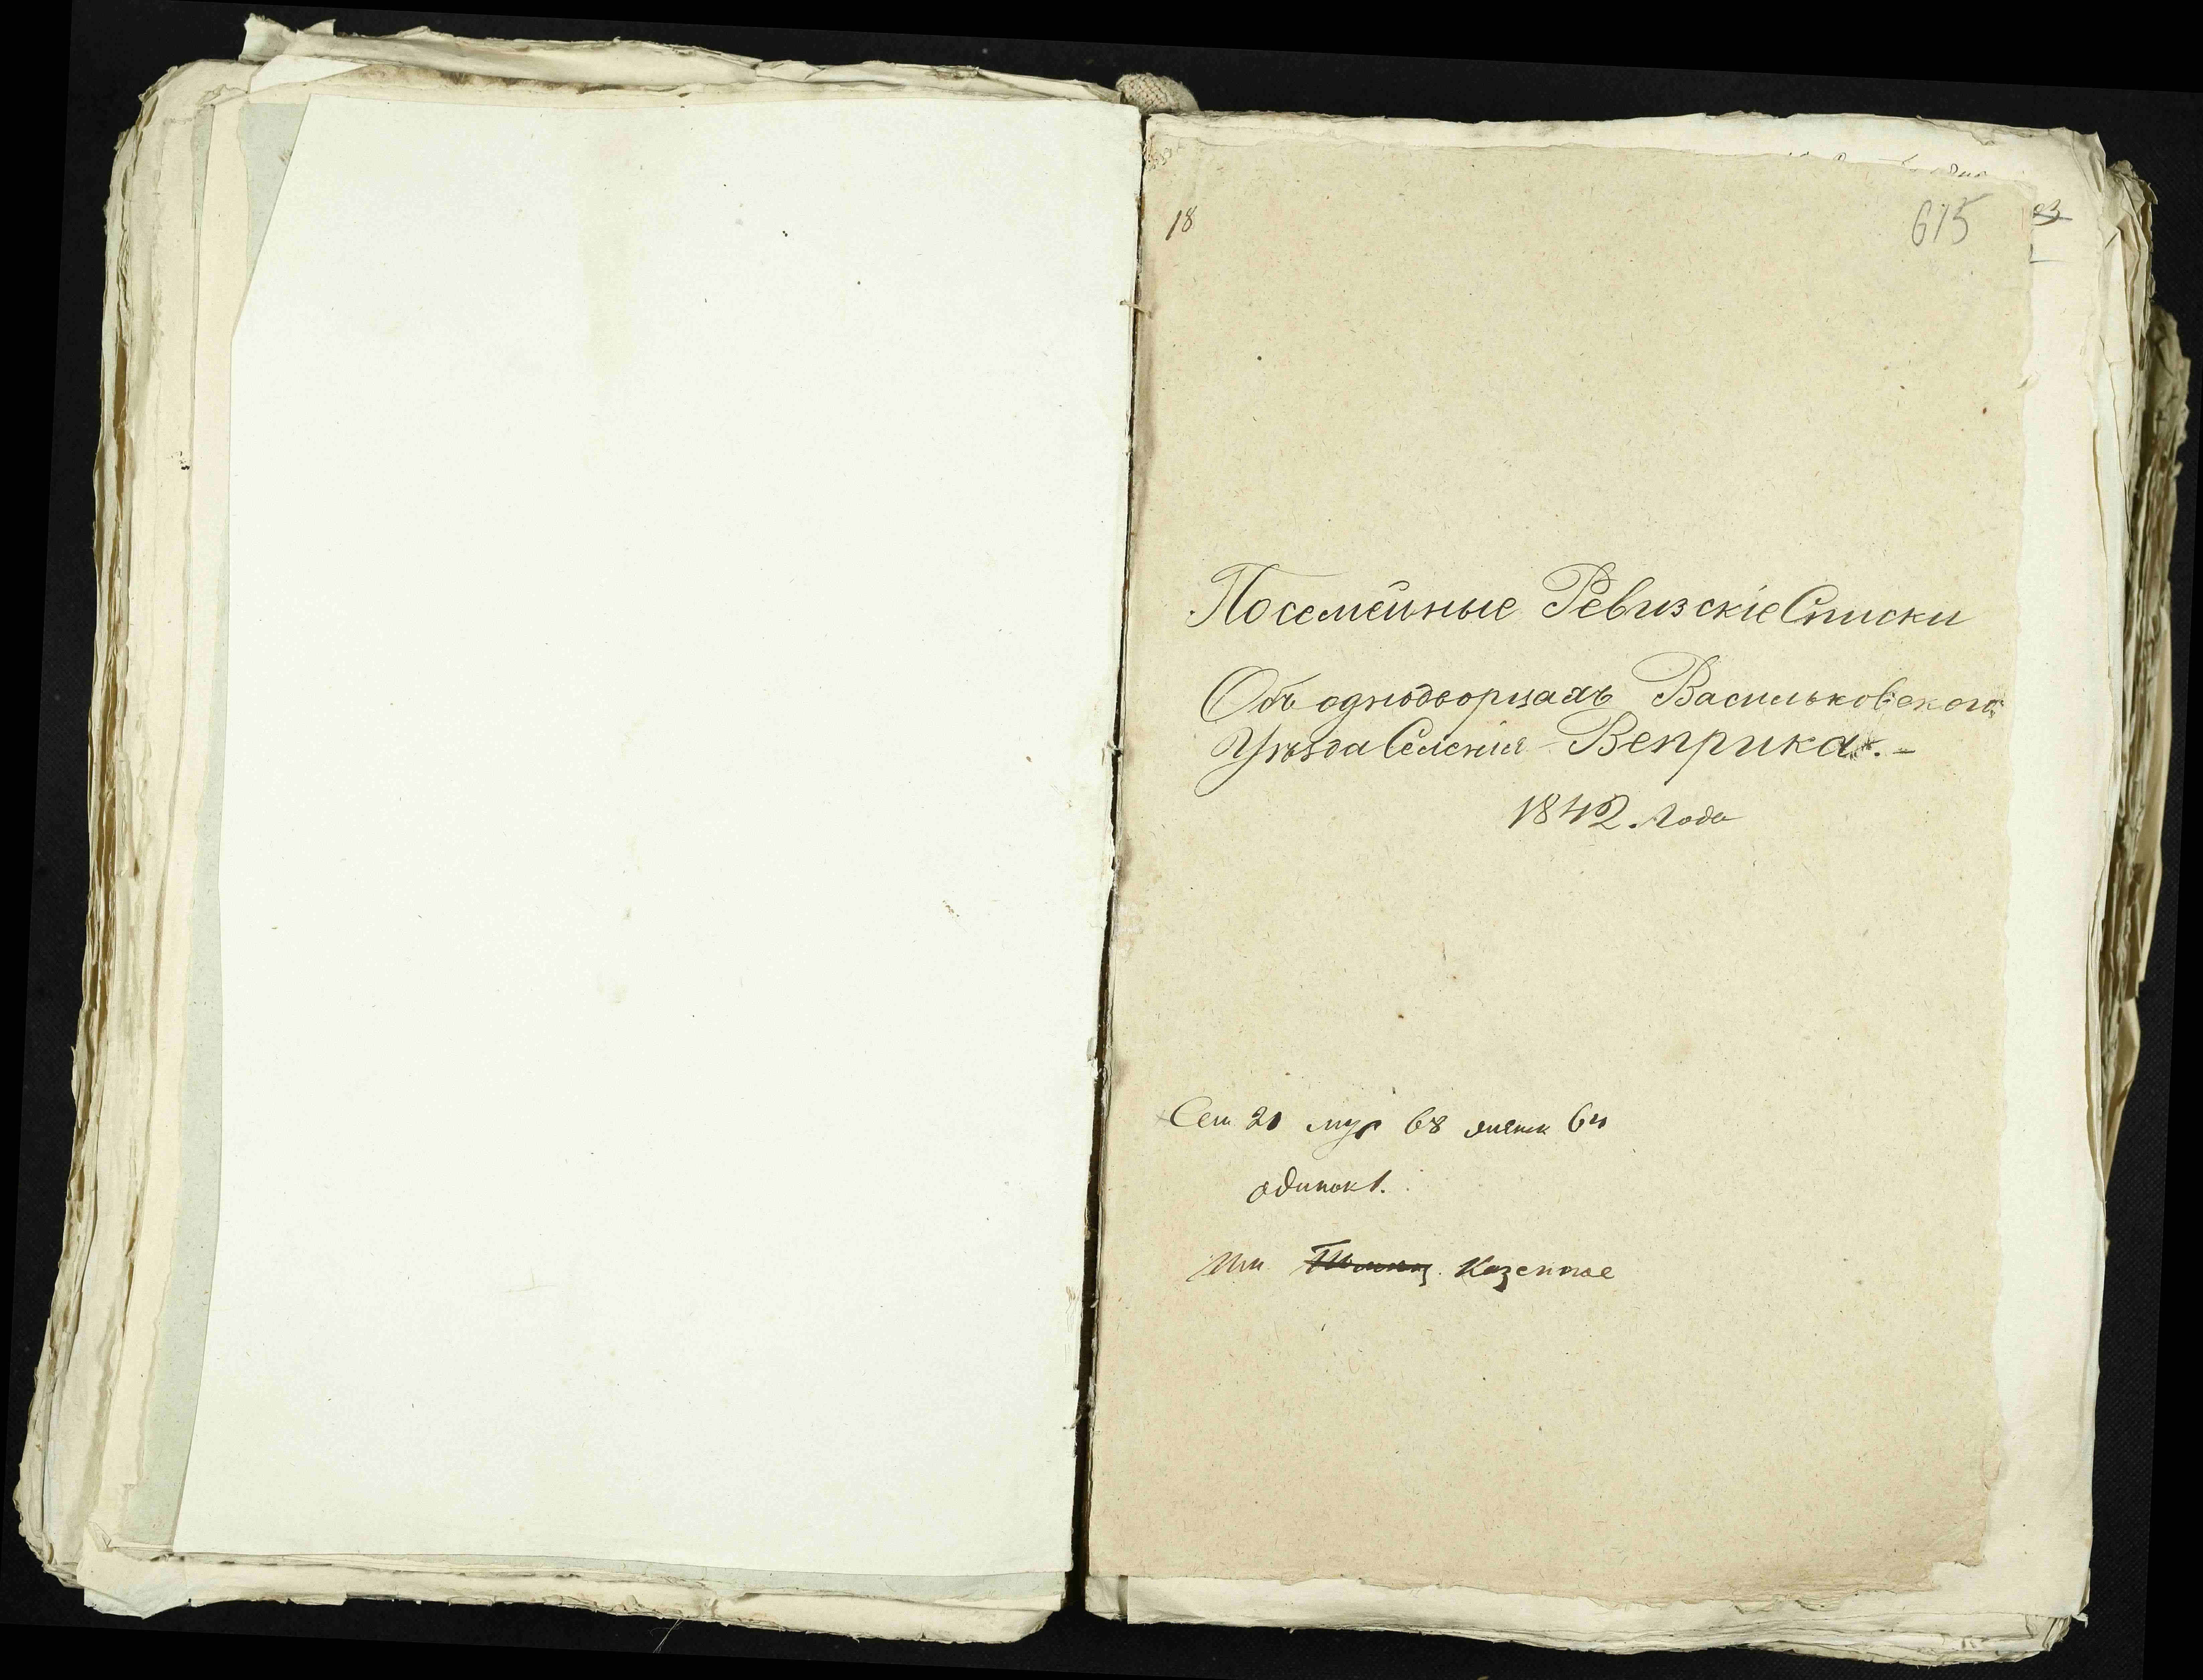 18
615
Посемейные Ревизскіе Списки
Объ однодворцахъ Васильковскаго
Уѣзда Селенія Веприка. -
1842. года
Сем 21 муж 68 женск 64
одинок 1.
Им Казенное